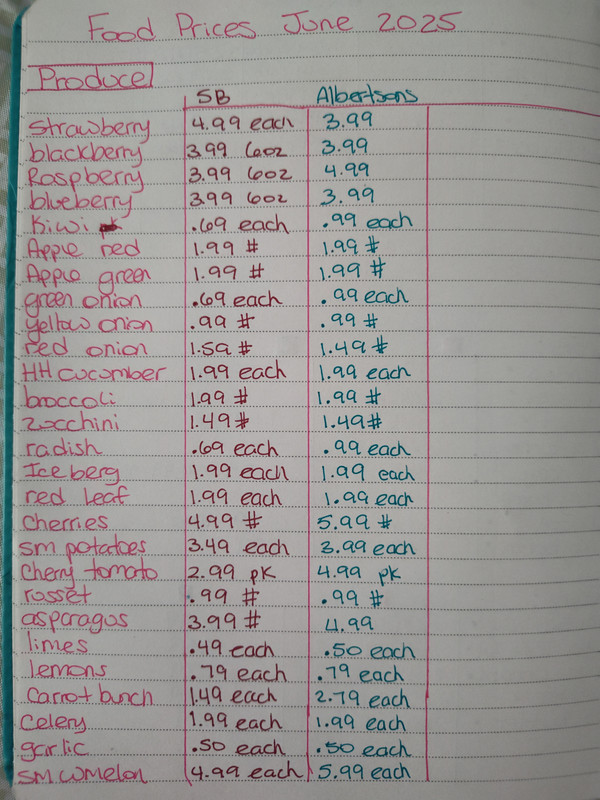 Food Prices June 2025
Produce
SB Albertsons
Strawberry 4.99 each 3.99
blackberry 3.99 6oz 3.99
Raspberry 3.99 6oz 4.99
blueberry 3.99 6oz 3.99
Kiwi .69 each .99 each
Apple red 1.99 # 1.99 #
Apple green 1.99 # 1.99 #
green onion .69 each .99 each
yellow onion .99 # .99 #
red onion 1.59 # 1.49 #
HH cucumber 1.99 each 1.99 each
broccoli 1.99 # 1.99 #
zucchini 1.49 # 1.49 #
radish .69 each .99 each
Iceberg 1.99 each 1.99 each
red leaf 1.99 each 1.99 each
Cherries 4.99 # 5.99 #
sm potatoes 3.49 each 3.99 each
Cherry tomato 2.99 pk 4.99 pk
russet .99 # .99 #
asparagus 3.99 # 4.99
limes .49 each .50 each
lemons .79 each .79 each
Carrot bunch 1.49 each 2.79 each
Celery 1.99 each 1.99 each
garlic .50 each .50 each
SM wmelon 4.99 each 5.99 each